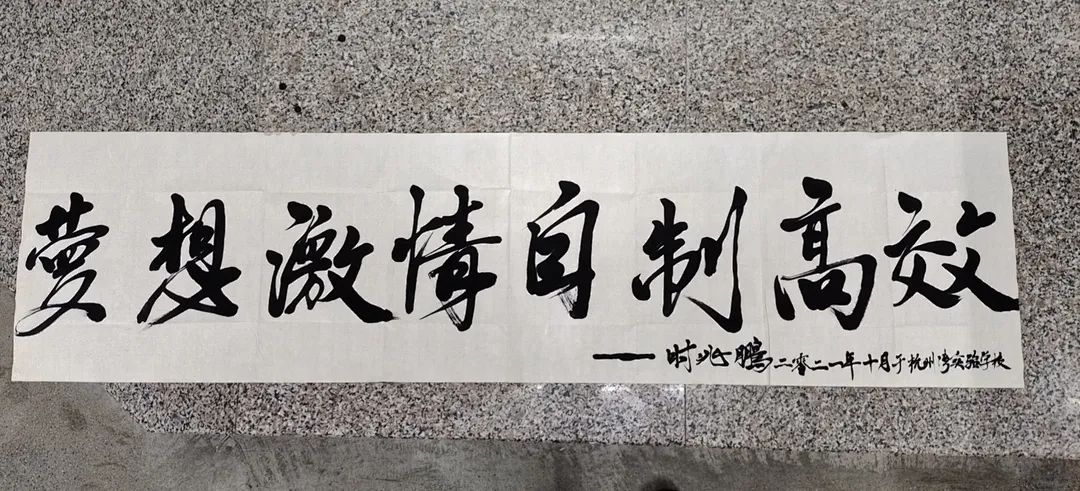 夢想激情自制高效
——时兆鹏二零二一年十月于杭州湾实验学校